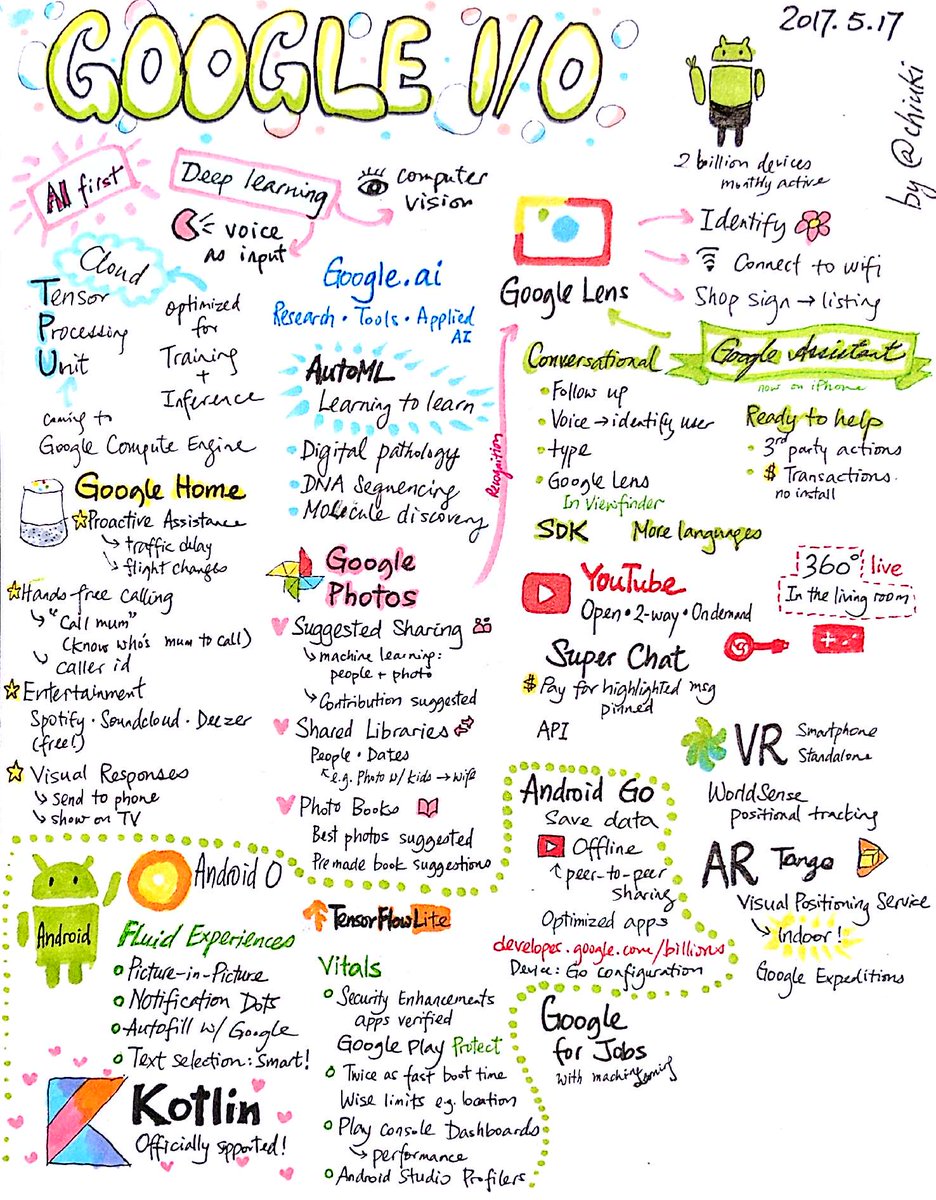 GOOGLE I/O
2017.5.17
by @chiuki
2 billion devices
monthly active
AI first
Deep learning
computer
vision
voice
as input
Cloud
Tensor
Processing
Unit
optimized
for
Training
+
Inference
coming to
Google Compute Engine
Google.ai
Research • Tools • Applied
AI
AutoML
Learning to learn
• Digital pathology
• DNA Sequencing
• Molecule discovery
Google Lens
Identify
Connect to wifi
Shop sign → listing
Recognition
Google Assistant
now on iPhone
Conversational
• Follow up
• Voice → identify user
• type
• Google Lens
In Viewfinder
Ready to help
• 3rd party actions
• $ Transactions.
no install
SDK
More languages
Google Home
Proactive Assistance
↳ traffic delay
↳ flight changes
Hands-free calling
↳ "Call mum"
(know who's mum to call)
↳ caller id
Entertainment
Spotify • Soundcloud • Deezer
(free!)
Visual Responses
↳ send to phone
↳ show on TV
Google
Photos
Suggested Sharing
↳ machine learning:
people + photo
↳ Contribution suggested
Shared Libraries
People • Dates
e.g. Photo w/ kids → wife
Photo Books
Best photos suggested
Premade book suggestions
YouTube
Open • 2-way • On demand
360° live
In the living room
Super Chat
$ Pay for highlighted msg
pinned
API
VR
Smartphone
Standalone
WorldSense
positional tracking
AR Tango
Visual Positioning Service
↳ Indoor!
Google Expeditions
Android Go
Save data
Offline
↑ peer-to-peer
sharing
Optimized apps
developer.google.com/billions
Device: Go configuration
Google
for Jobs
with machine learning
Android
Android O
Fluid Experiences
Picture-in-Picture
Notification Dots
Autofill w/ Google
Text selection: Smart!
TensorFlow Lite
Vitals
Security Enhancements
apps verified
Google Play Protect
Twice as fast boot time
Wise limits eg. location
Play console Dashboards
↳ performance
Android Studio Profilers
Kotlin
Officially spported!